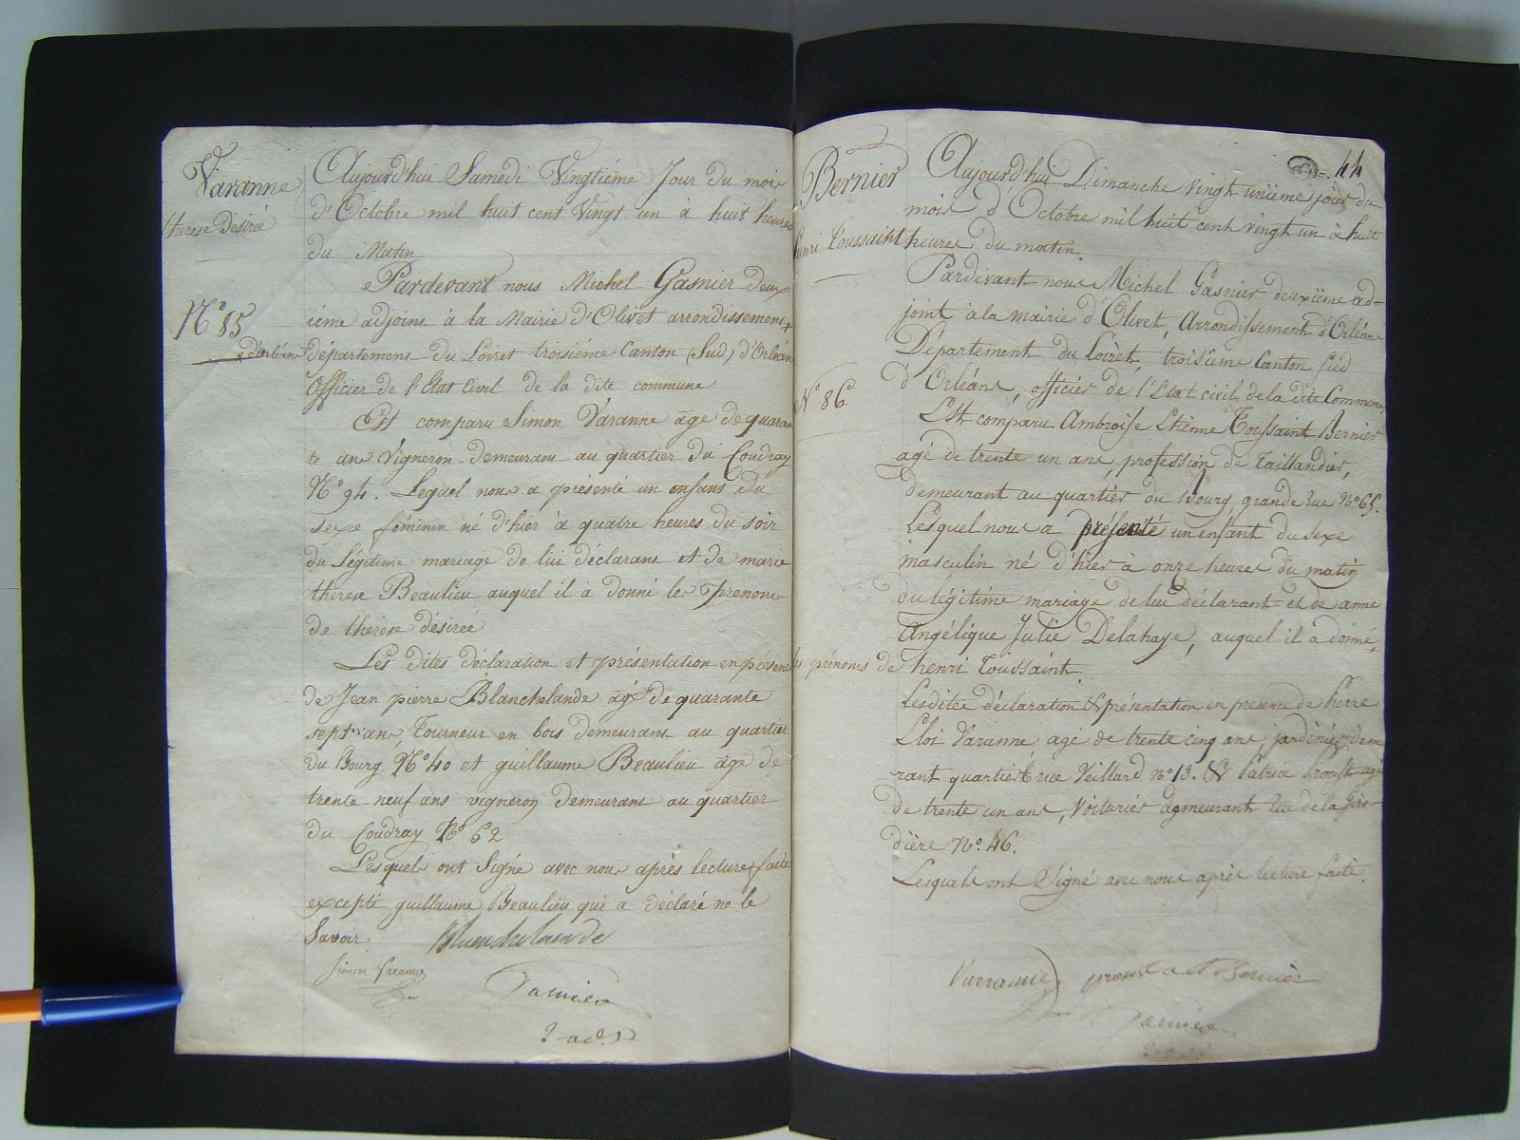 Varanne
therese Desiré
N° 85
Aujourd'hui Samedi Vingtième Jour du mois
d'Octobre mil huit cent Vingt un à huit heures
du Matin
Pardevant nous Michel Gasnier deux-
ième adjoint à la Mairie d'Olivet arrondissement +
+ d'orléans
département du Loiret troisième Canton (Sud) d'Orléans
Officier de l'Etat Civil de la dite commune
Est comparu Simon Varanne âgé de quaran
te ans Vigneron demeurant au quartier du Coudray
N° 94. Lequel nous a présenté un enfant du
sexe féminin né d'hier à quatre heures du soir
du Légitime mariage de lui déclarant et de marie
therese Beaulieu auquel il à donné les Prenoms
de thérèse désirée
Les dites déclaration et présentation en présence
de Jean pierre Blanchelande âgé de quarante
sept ans, Tourneur en bois demeurant au quartier
du Bourg N° 40 et guillaume Beaulieu âgé de
trente neuf ans vigneron demeurant au quartier
du Coudray N° 62
Lesquels ont Signé avec nous après lecture faite
excepté guillaume Beaulieu qui a déclaré ne le
Savoir. Blanchelande
Simon
Gasnier
2 ad.
44
Bernier
henri Toussaint
N° 86
Aujourd'hui Dimanche vingt unième jour du
mois d'Octobre mil huit cent vingt un à huit
heures du matin.
Pardevant nous Michel Gasnier deuxième ad-
joint à la mairie d'Olivet, Arrondissement d'Orléans
Département du Loiret, troisième Canton, sud
d'Orléans, officier de l'Etat civil de la dite Commune
Est comparu Ambroise Etienne Toussaint Bernier
agé de trente un ans, profession de Taillandier,
demeurant au quartier du Bourg, grande rue N° 65.
Lesquel nous a présenté un enfant du sexe
masculin né d'hier à onze heures du matin
du légitime mariage de lui déclarant et de anne
Angélique Julie Delahaye, auquel il a donné,
les prénoms de henri Toussaint.
Lesdites déclaration & présentation en presence de Pierre
Eloi Varanne agé de trente cinq ans, jardinier deme
rant quartier & rue Veillard n° 13. & Patrice Proust agé
de trente un ans, Voiturier demeurant rue de la Gre-
dière N°. 46.
Lesquels ont Signé avec nous après lecture faite.
Varranne proust a e t Bernier
Gasnier